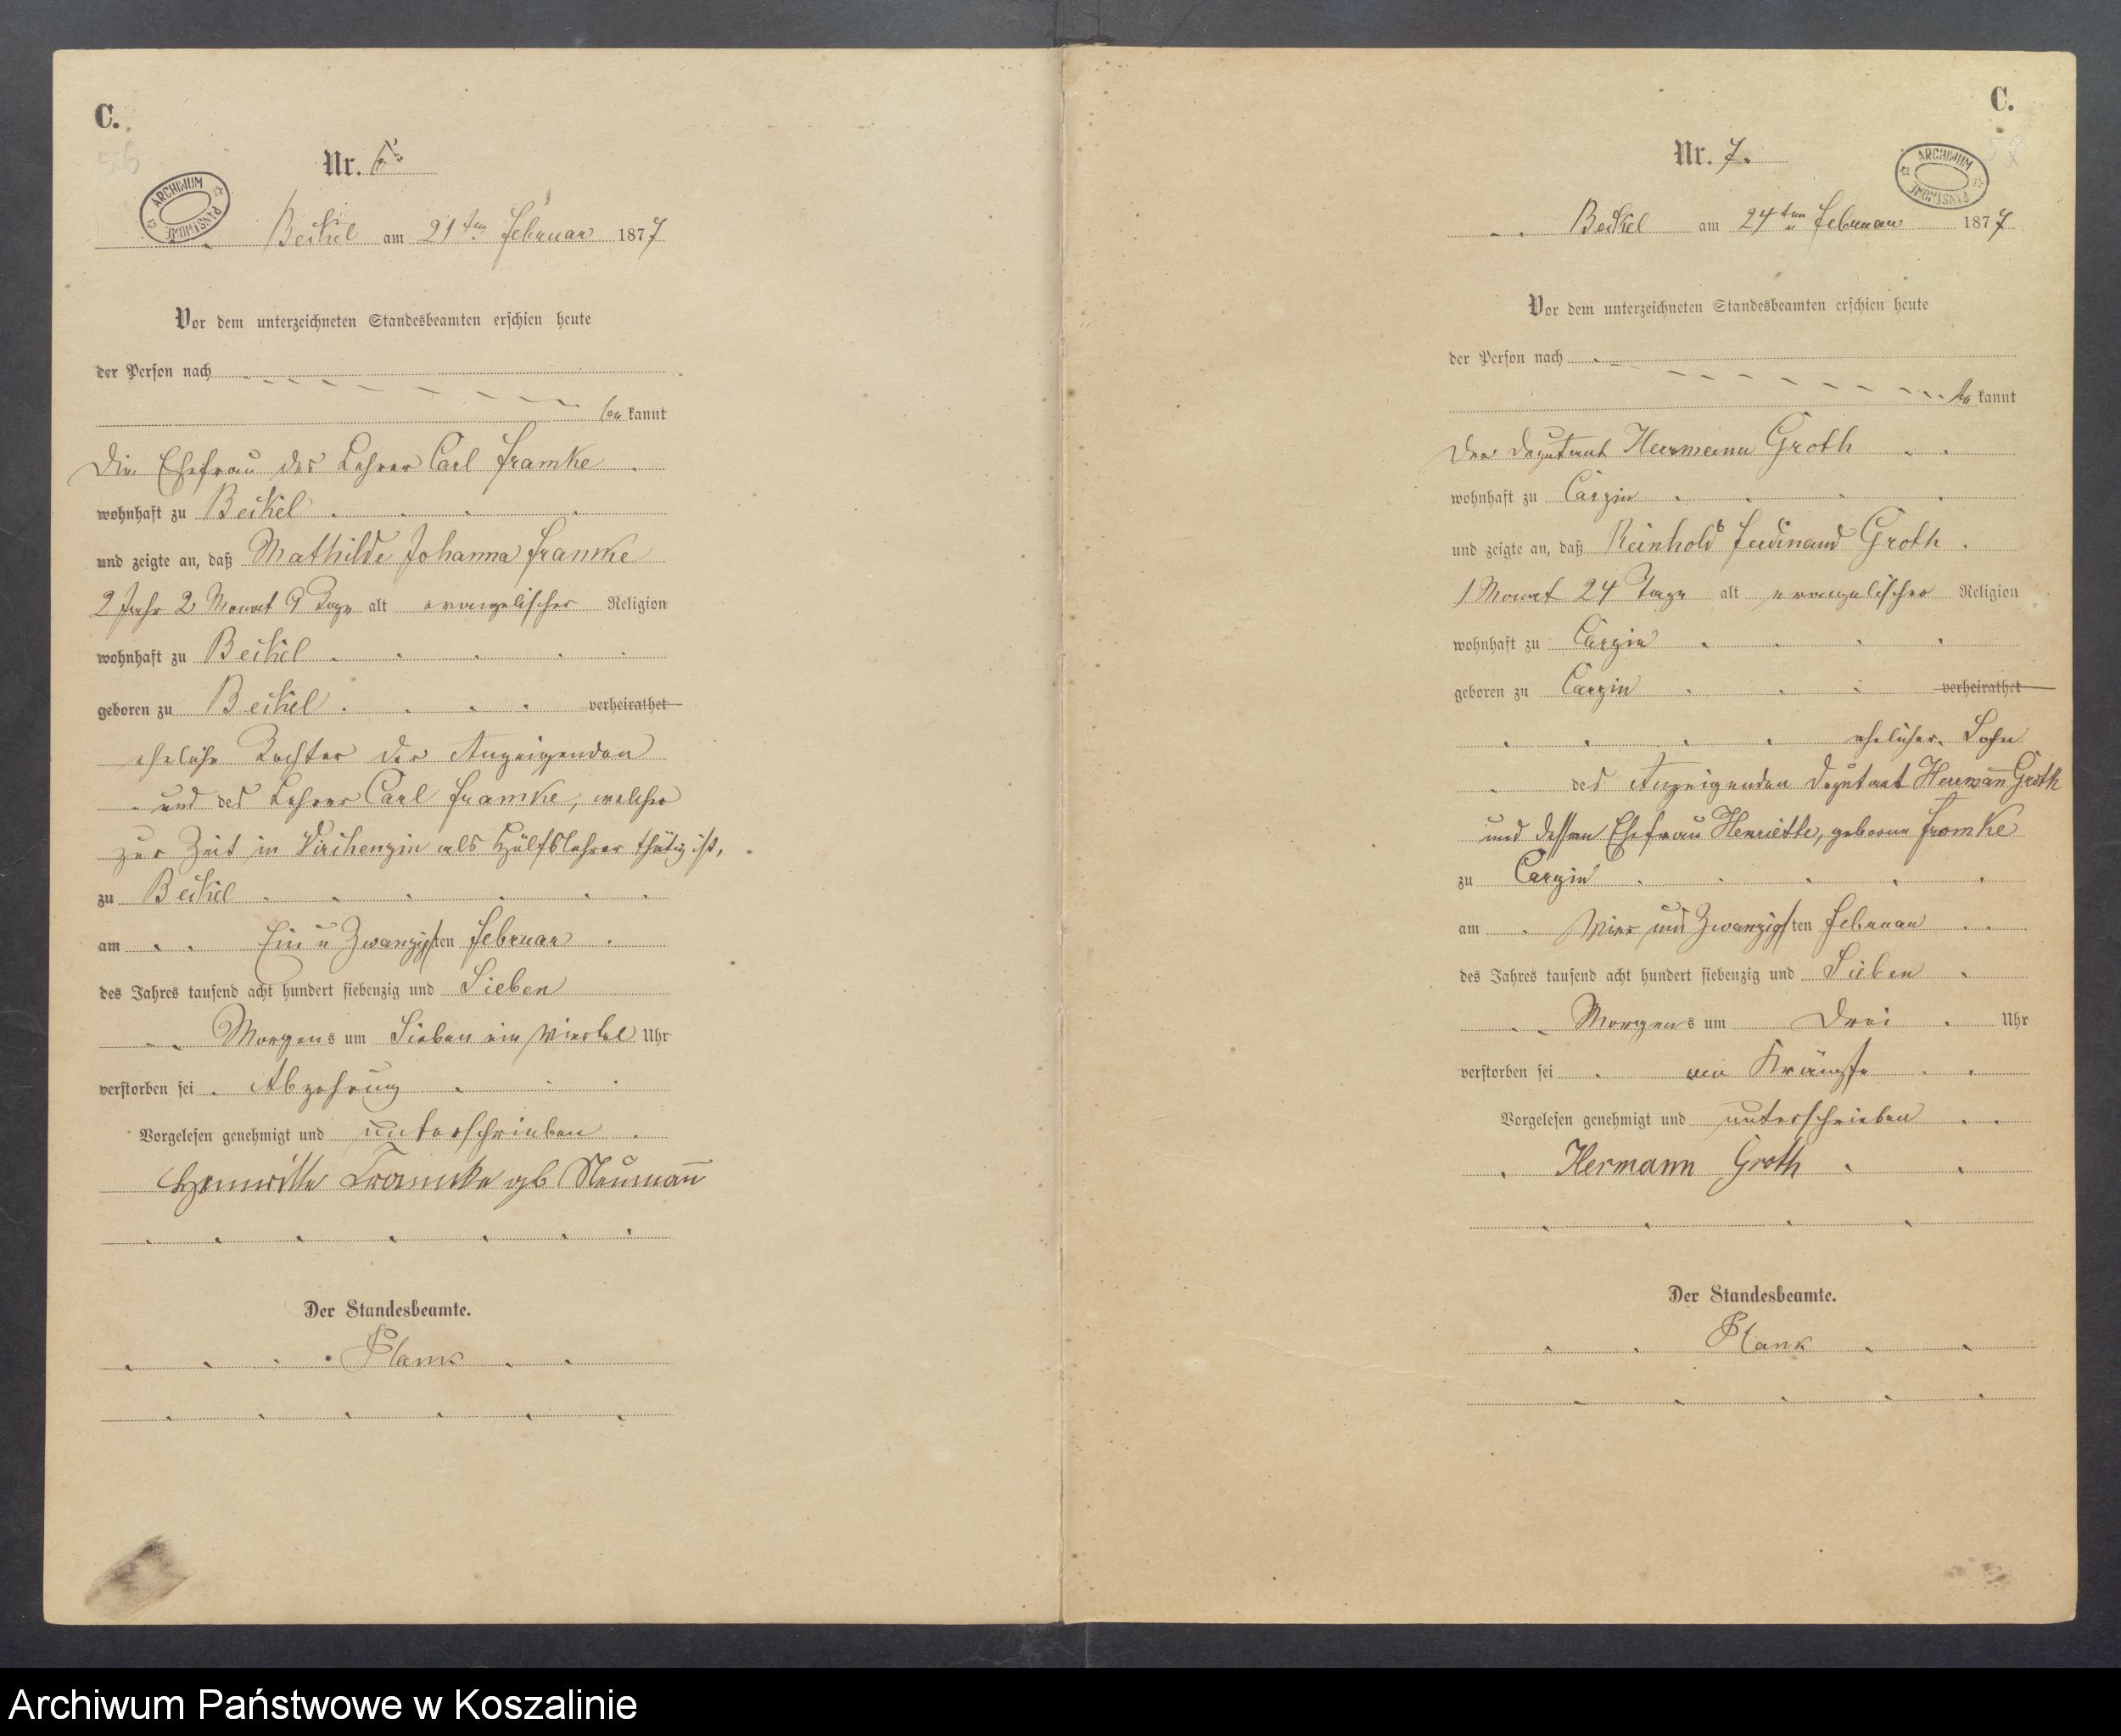 C.
56
Nr. 6.
ARCHIWUM PAŃSTWOWE
Beckel am 21ten Februar 1877
Vor dem unterzeichneten Standesbeamten erschien heute
der Person nach
be kannt
die Ehefrau des Lehrer Carl Framke
wohnhaft zu Beckel
und zeigte an, daß Mathilde Johanna Framke
2 Jahr 2 Monat 9 Tage alt evangelischer Religion
wohnhaft zu Beckel
geboren zu Beckel verheirathet
eheliche Tochter der Anzeigenden
und des Lehrer Carl Framke, welcher
zur Zeit in Virchenzin als Hülfslehrer thätig ist,
zu Beckel
am Ein u Zwanzigsten Februar
des Jahres tausend acht hundert siebenzig und Sieben
Morgens um Sieben ein Viertel Uhr
verstorben sei Abzehrung
Vorgelesen genehmigt und unterschrieben
Henriette Framcke gb Neumann̄
Der Standesbeamte.
Plank
C.
Nr. 7.
ARCHIWUM PAŃSTWOWE
Beckel am 24ten Februar 1877
Vor dem unterzeichneten Standesbeamten erschien heute
der Person nach
be kannt
der Deputant Herrmann Groth
wohnhaft zu Carzin
und zeigte an, daß Reinhold Ferdinand Groth
1 Monat 24 Tage alt evangelischer Religion
wohnhaft zu Carzin
geboren zu Carzin verheirathet
ehelicher Sohn
des Anzeigenden Deputant Herrman̄ Groth
und dessen Ehefrau Henriette, geborne Fromke
zu Carzin
am Vier und Zwanzigsten Februar
des Jahres tausend acht hundert siebenzig und Sieben
Morgens um Drei Uhr
verstorben sei an Krämpfe
Vorgelesen genehmigt und unterschrieben
Hermann Groth
Der Standesbeamte.
Plank
Archiwum Państwowe w Koszalinie